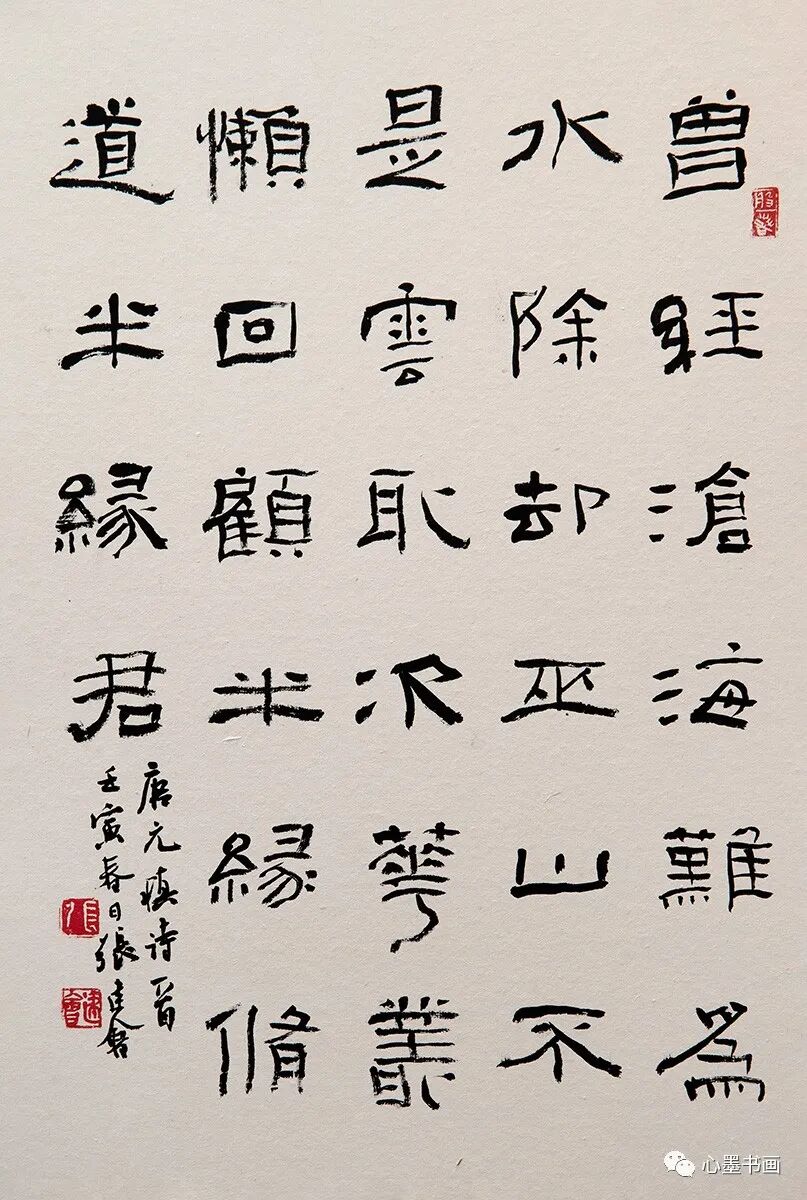 曾經滄海難爲
水除却巫山不
是雲取次華叢
懶回顧半緣脩
道半緣君
唐元稹詩一首
壬寅春日張建會
張
建會
心墨书画